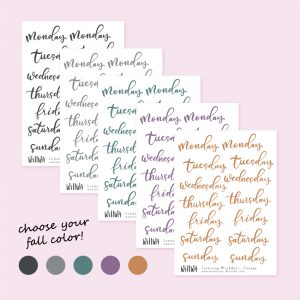 monday. monday.
tuesday
wednesday
thursday
friday
saturday
sunday.
monday. monday.
tuesday
wednesday
thursday
friday
saturday
sunday.
monday. monday.
tuesday
wednesday
thursday
friday
saturday
sunday.
monday. monday.
tuesday
wednesday
thursday
friday
saturday
sunday.
monday. monday.
tuesday. tuesday.
wednesday. wednesday
thursday. thursday
friday. friday.
saturday. saturday.
sunday. sunday.
Lettering Weekdays - Orange
choose your
fall color!